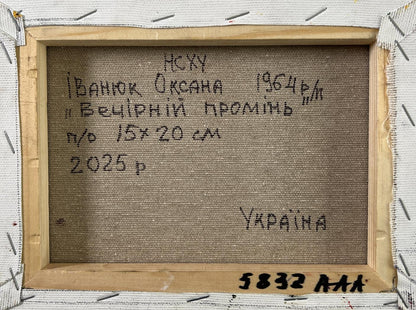 НСХУ
Іванюк Оксана 1964 р/н
„Вечірній промінь"
п/о 15×20 см
2025 р
Україна
5832 ААА